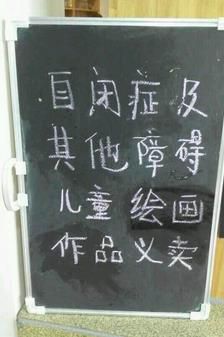 自闭症及
其他障碍
儿童绘画
作品义卖